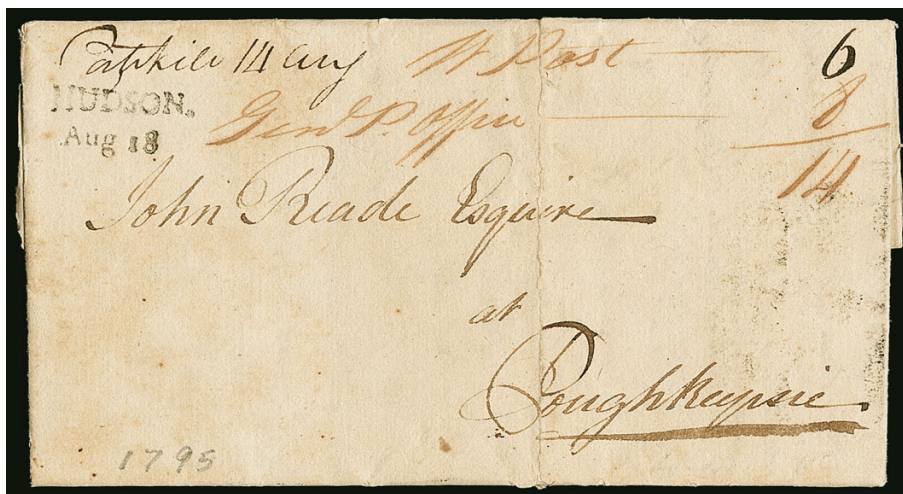 Catskill 14 Aug W Post 6
HUDSON.
Aug 18
Genl P. Office 8
14
John Reade Esquire
at
Poughkeepsie
1795